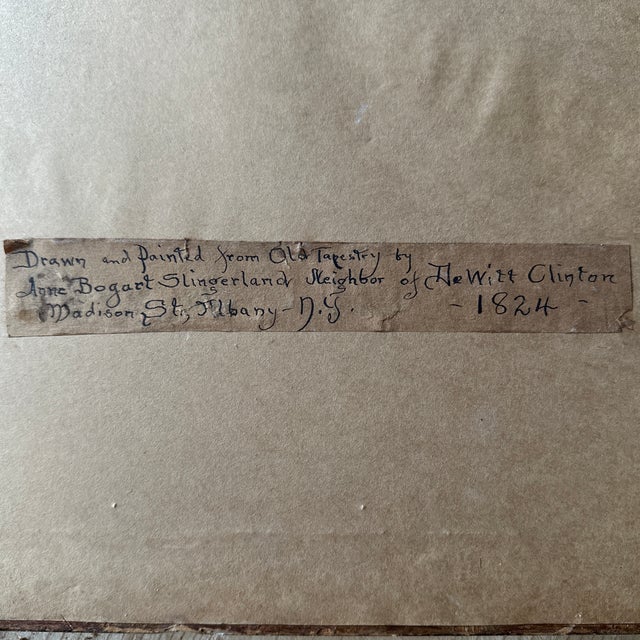 Drawn and Painted from Old Tapestry by
Anne Bogart Slingerland Neighbor of DeWitt Clinton
Madison St., Albany - N.Y. - 1824 -